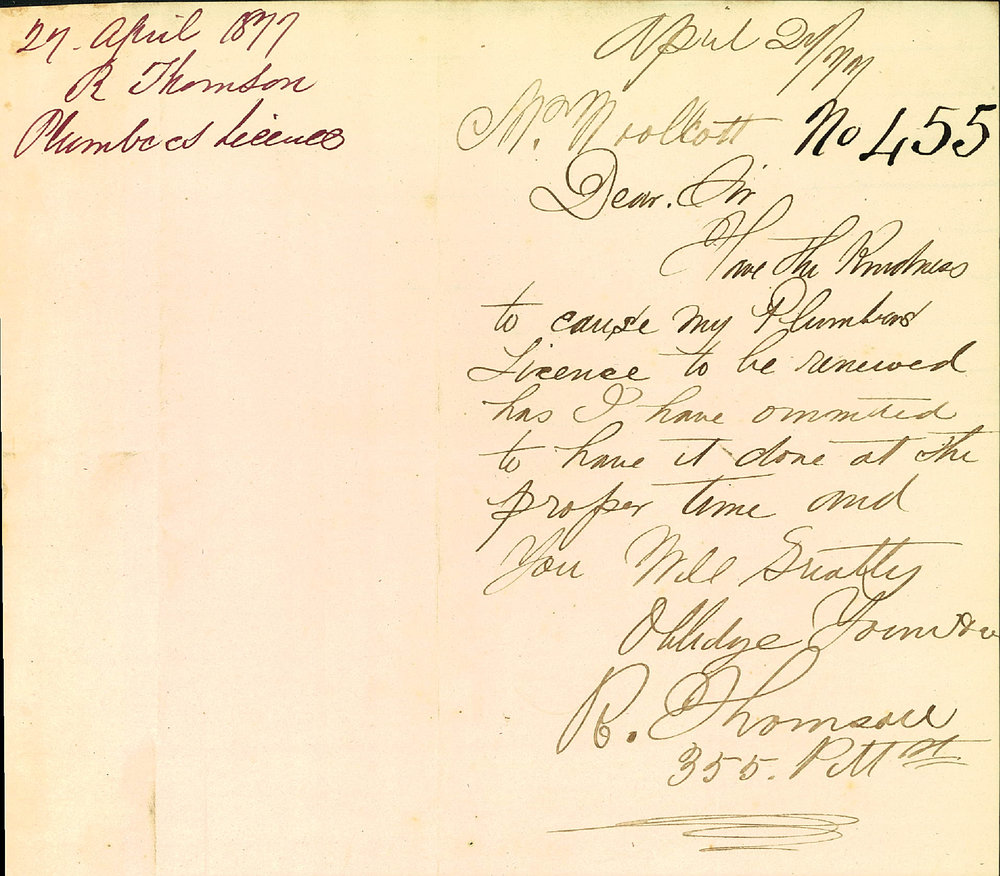 27. April 1877
R Thomson
Plumbers Licence
April 27/77
Mr. Woollcott No 455
Dear. Sir
Have the Kindness
to cause my Plumbers
Licence to be renewed
has I have ommited
to have it done at the
proper time and
You Will Greatly
Oblidge Yours
R. Thomson
355. Pitt St